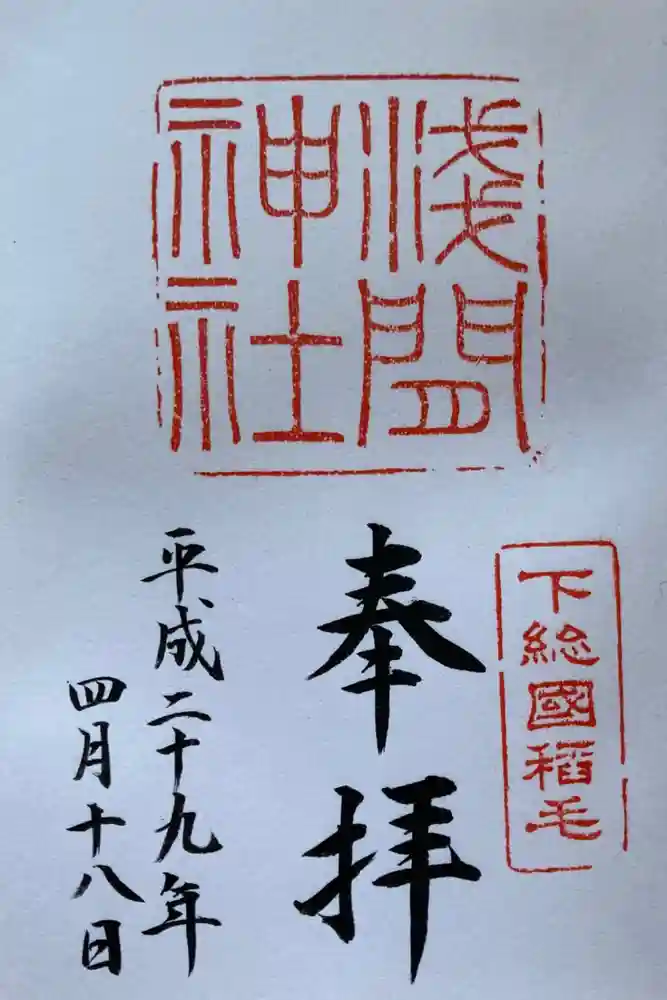 淺間
神社
下総國稻毛
奉拝
平成二十九年
四月十八日